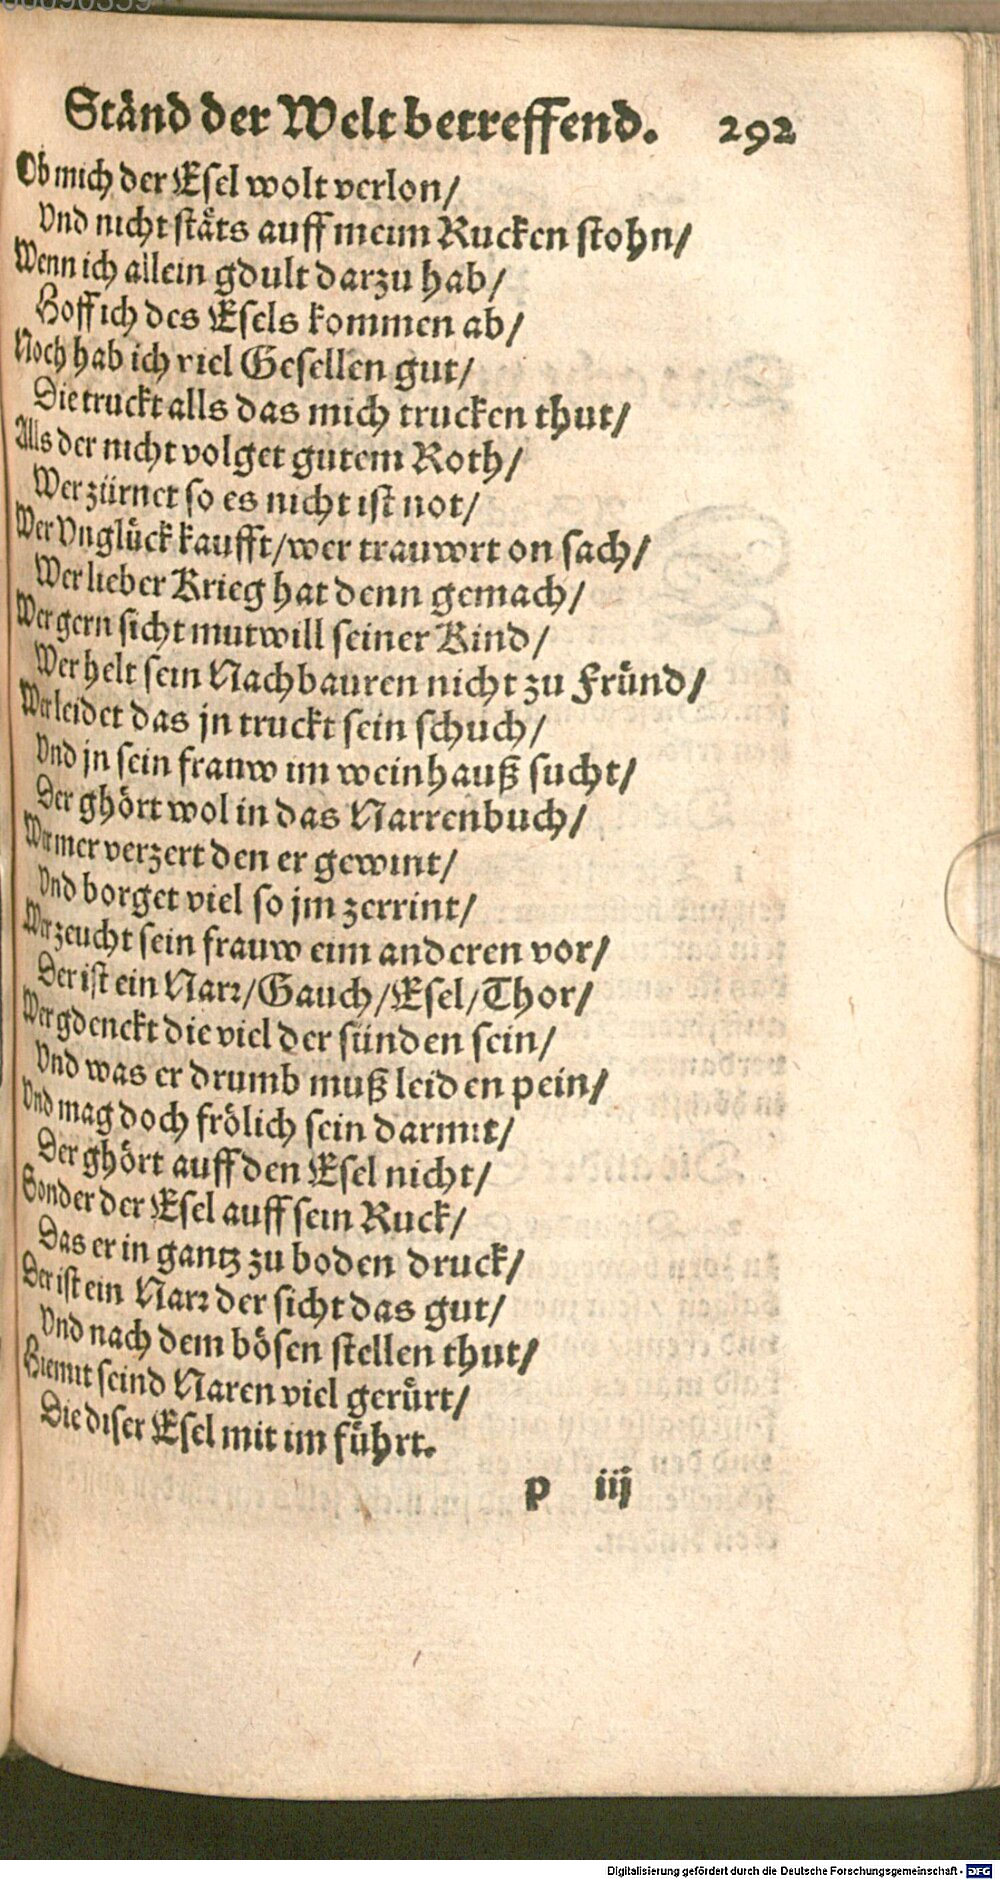 Ständ der Welt betreffend. 292
Ob mich der Esel wolt verlon/
Vnd nicht stäts auff meim Rucken stohn/
Wenn ich allein gdult darzu hab/
Hoff ich des Esels kommen ab/
Noch hab ich viel Gesellen gut/
Die truckt alls das mich trucken thut/
Alls der nicht volget gutem Roth/
Wer zürnet so es nicht ist not/
Wer Vnglück kaufft/wer trauwrt on sach/
Wer lieber Krieg hat denn gemach/
Wer gern sicht mutwill seiner Kind/
Wer helt sein Nachbauren nicht zu Fründ/
Wer leidet das jn truckt sein schuch/
Vnd jn sein frauw im weinhauß sucht/
Der ghört wol in das Narrenbuch/
Wer mer verzert den er gewint/
Vnd borget viel so jm zerrint/
Wer zeucht sein frauw eim anderen vor/
Der ist ein Narr/Gauch/Esel/Thor/
Wer gdenckt die viel der sünden sein/
Vnd was er drumb muß leiden pein/
Vnd mag doch frölich sein darmit/
Der ghört auff den Esel nicht/
Sonder der Esel auff sein Ruck/
Das er in gantz zu boden druck/
Der ist ein Narr der sicht das gut/
Vnd nach dem bösen stellen thut/
Hiemit seind Naren viel gerürt/
Die diser Esel mit im führt.
p iij
Digitalisierung gefördert durch die Deutsche Forschungsgemeinschaft - DFG